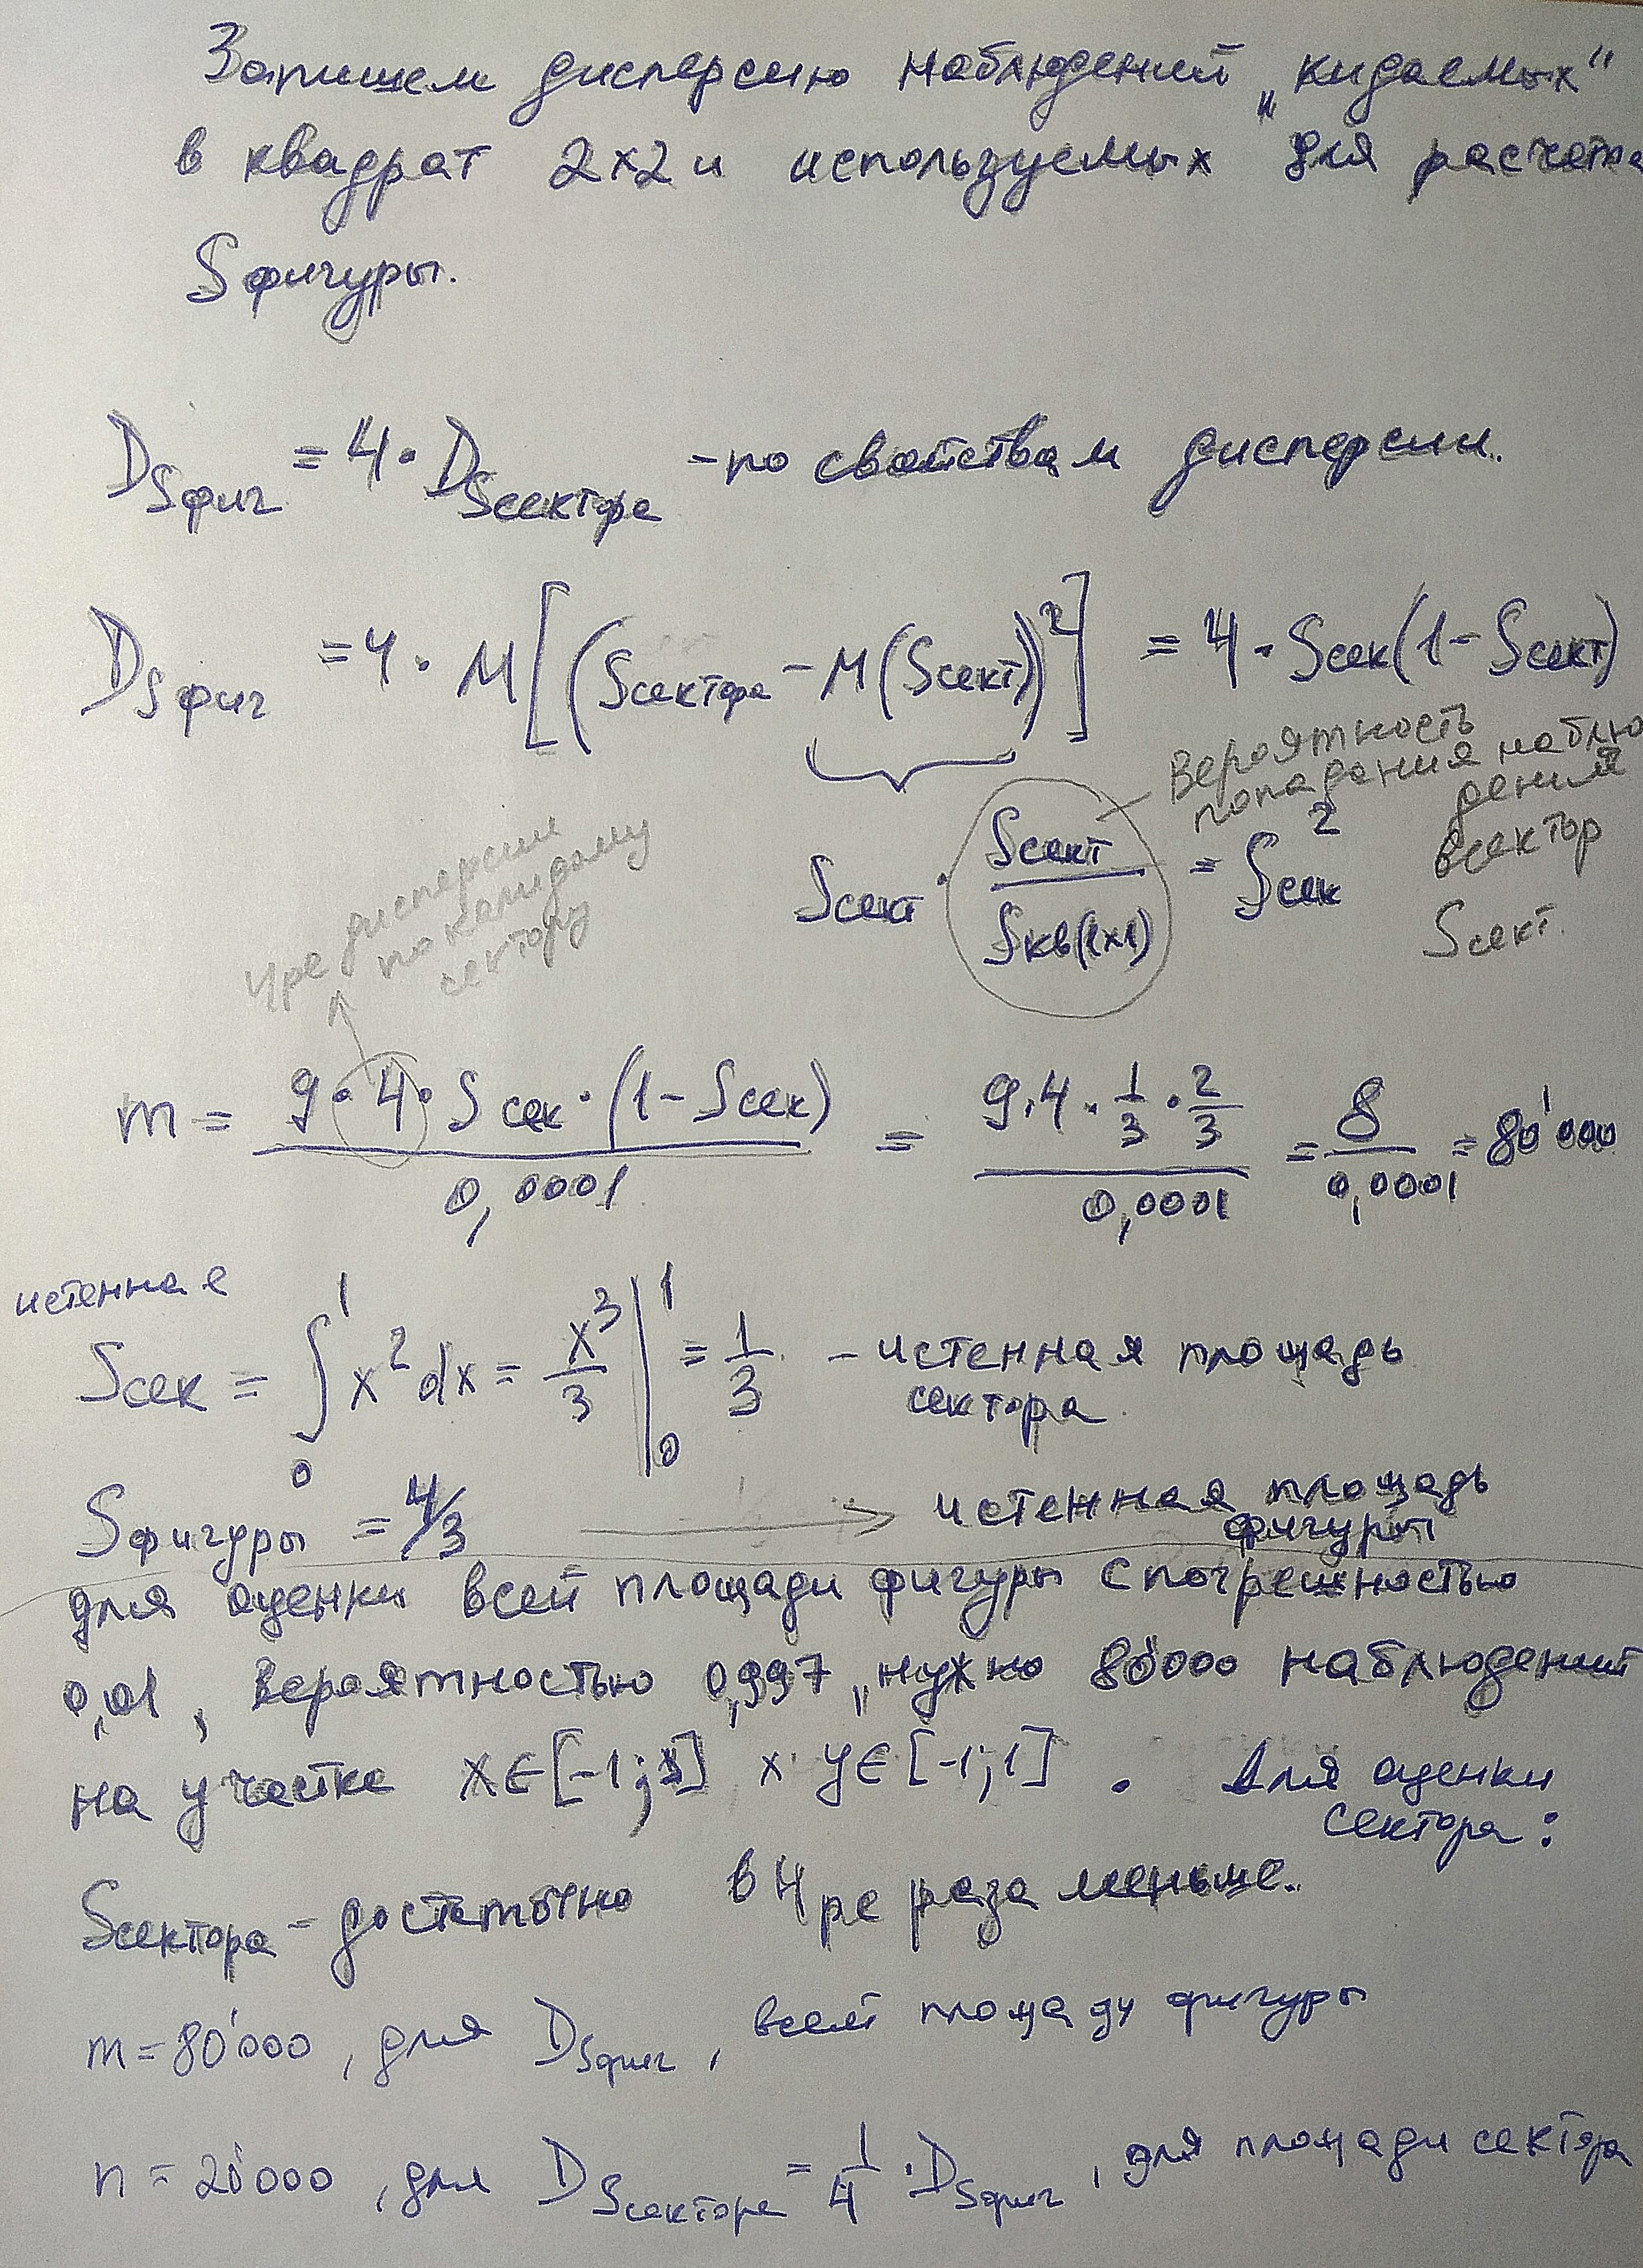 Запишем дисперсию наблюдений „кидаемых“
в квадрат 2×2 и используемых для расчета
Sфигуры.
DSфиг = 4 · DSсектора - по свойствам дисперсии.
DSфиг = 4 · M[(Sсектора - M(Sсект))²] = 4 · Sсек(1 - Sсект)
Вероятность
попадания наблю
дений
в сектор
Sсект.
Sсект · Sсект / Sкв(1×1) = Sсек²
4ре дисперсии
по каждому
сектору
m = 9 · 4 · Sсек · (1 - Sсек) / 0,0001 = 9 · 4 · 1/3 · 2/3 / 0,0001 = 8 / 0,0001 = 80'000
истенная
Sсек = ∫₀¹ x² dx = x³/3 |₀¹ = 1/3 - истенная площадь
сектора
Sфигуры = 4/3 → истенная площадь
фигуры
для оценки всей площади фигуры с погрешностью
0,01 , вероятностью 0,997, нужно 80'000 наблюдений
на участке x∈[-1;1] × y∈[-1;1] . Для оценки
сектора:
Sсектора - достаточно в 4ре раза меньше.
m = 80'000 , для DSфиг , всей площади фигуры
n = 20'000 , для DSсектора = 1/4 · DSфиг , для площади сектора